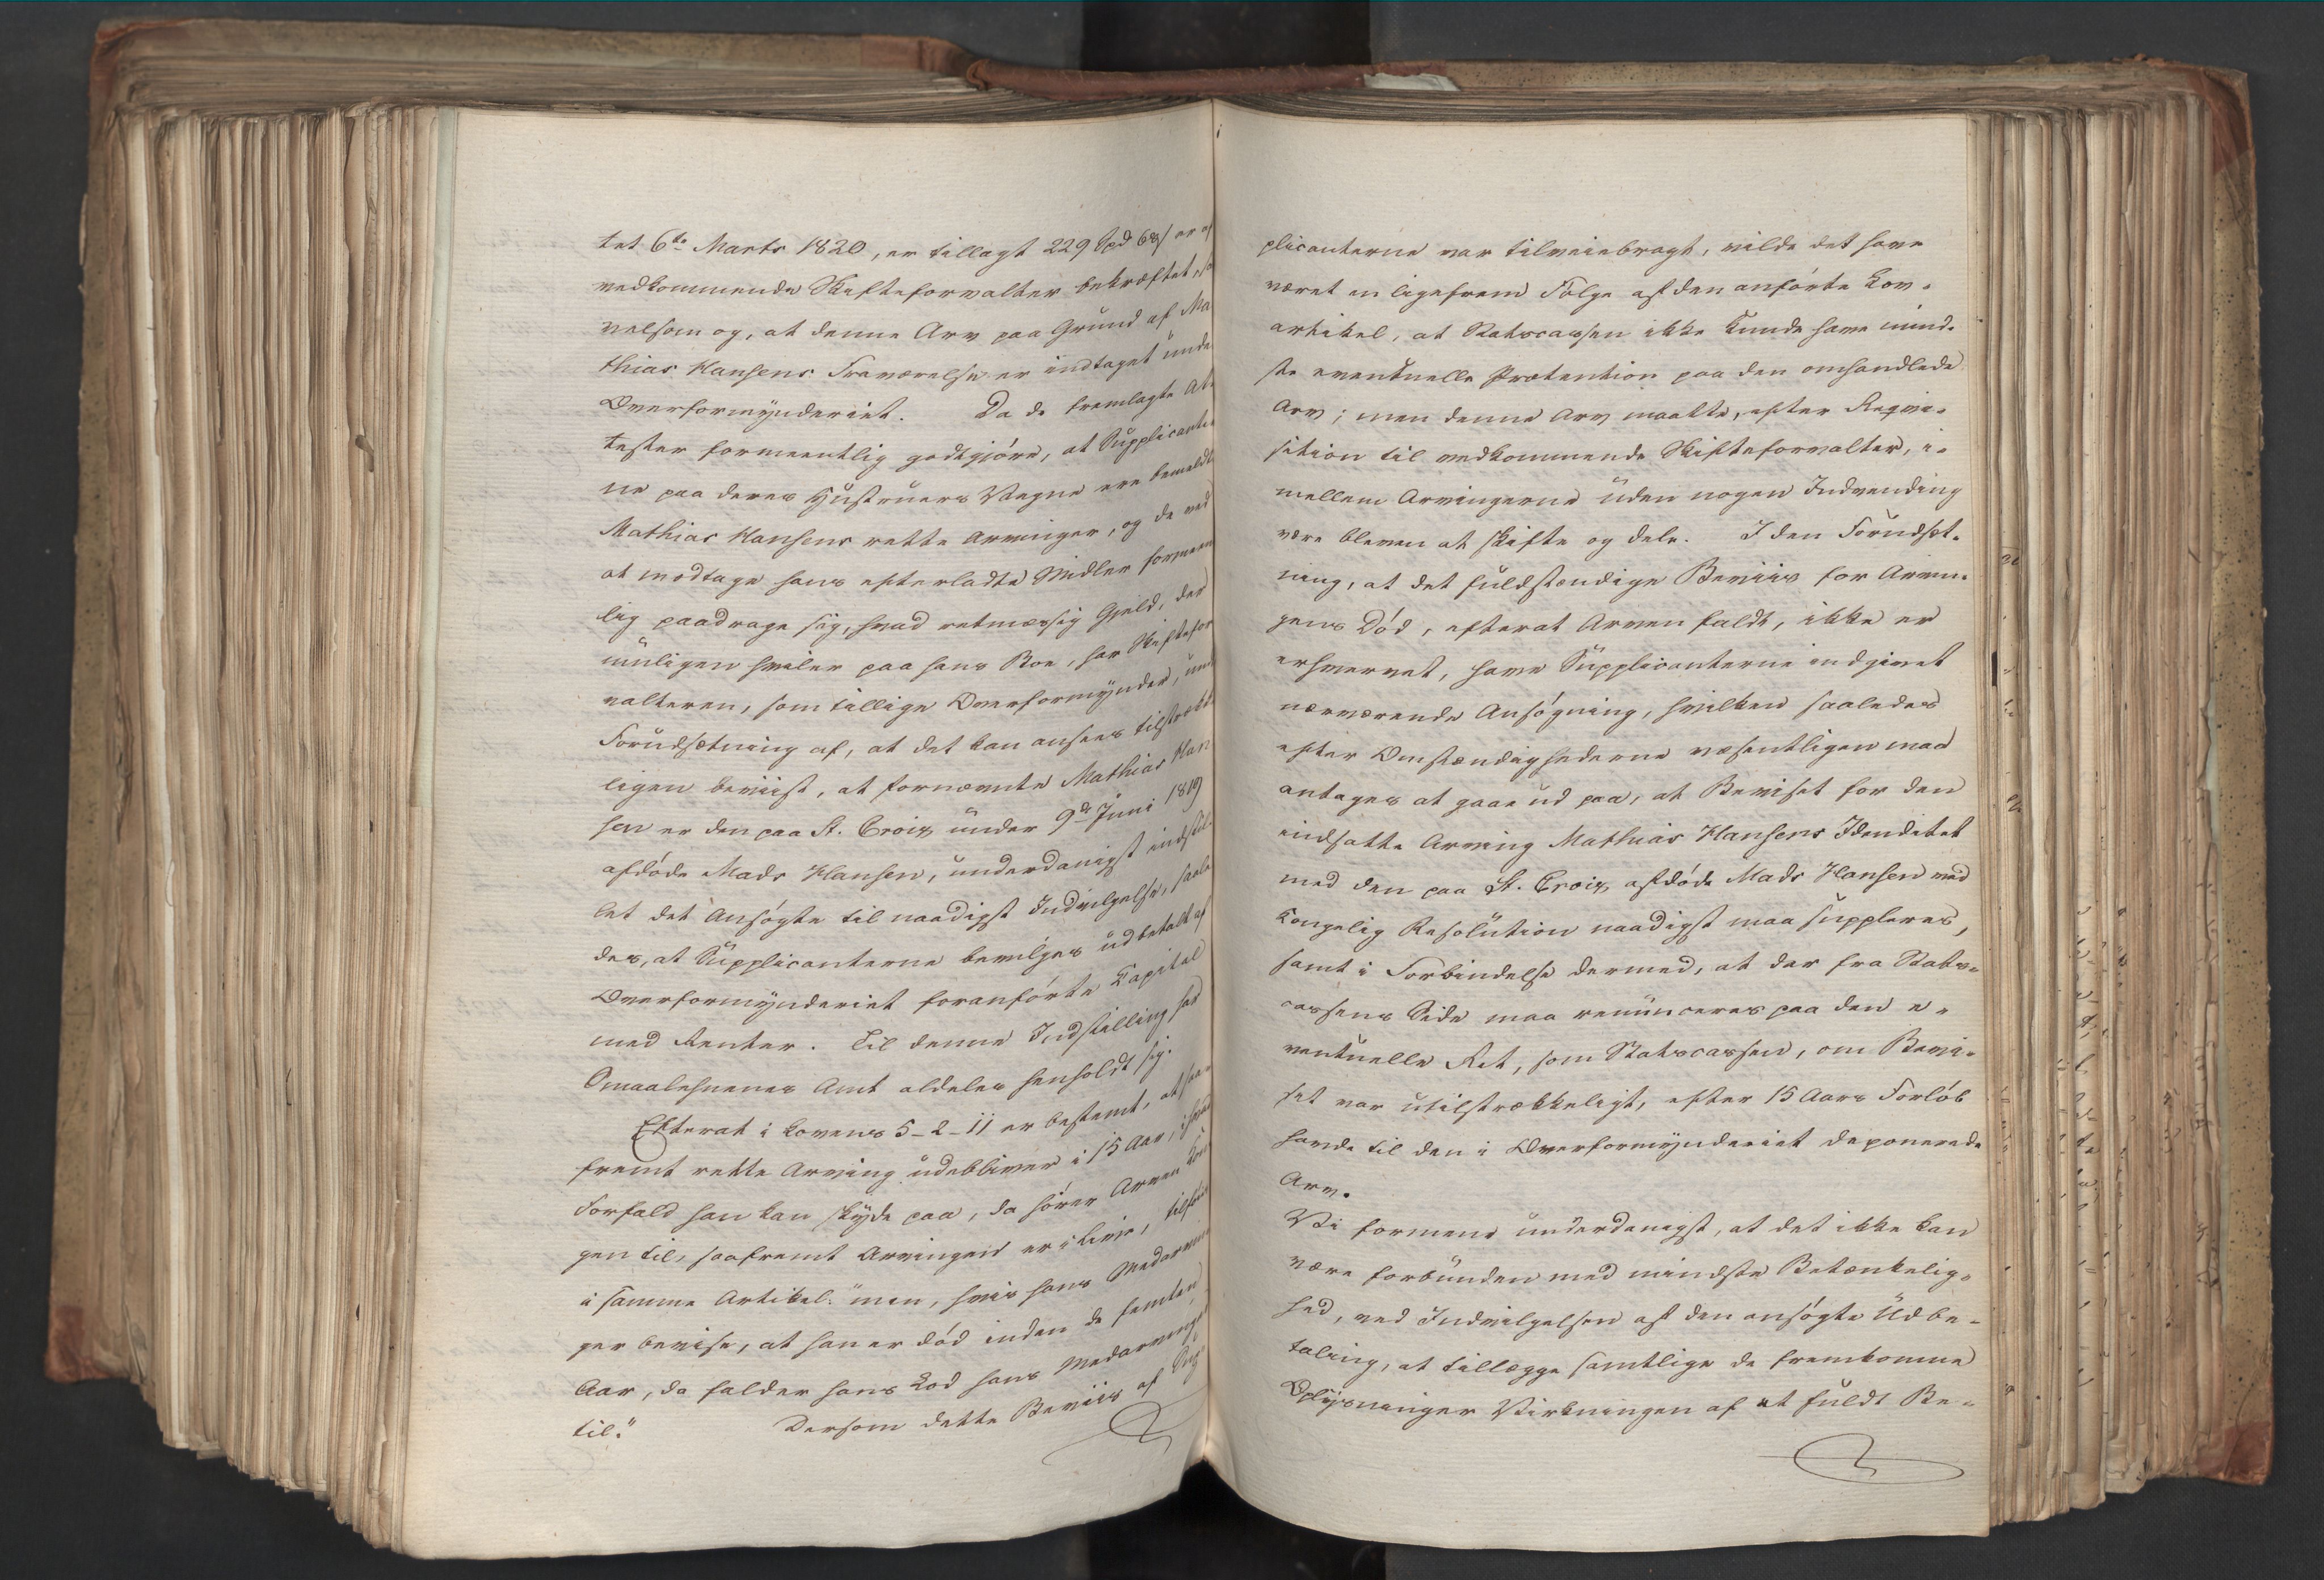 tet 6te Marts 1820, er tillagt 229 Spd 68 s er af
vedkommende Skifteforvalter bekræftet, saa
velsom og, at denne Arv paa Grund af Ma
thias Hansens Fraværelse er indtaget unde
Overformynderiet. Da de fremlagte At-
tester formeentlig godtgjöre, at Supplicanter
ne paa deres Hustruers Vegne ere bemeldte
Mathias Hansens rette Arvinger, og de ved
at modtage hans efterladte Midler formeen
lig paadrage sig, hvad retmæssig Gjeld, der
muligen hviler paa hans Boe, har Skiftefor
valteren, som tillige Overformynder, und
Forudsætning af, at det kan ansees tilstrække
ligen beviist, at fornævnte Mathias Han
sen er den paa St. Croix under 9de Juni 1819
afdöde Mads Hansen, underdanigst indstil-
let det Ansögte til naadigst Indvilgelse, saale
des, at Supplicanterne bevilges udbetalt af
Overformynderiet foranförte Capital
med Renter. Til denne Indstilling har
Smaalehnenes Amt aldeles henholdt sig.
Efterat i Lovens 5-2-11 er bestemt, at saa-
fremt rette Arving udebliver i 15 Aar, i hvad
Forfald han kan skyde paa, da hörer Arven Kon
gen til, saafremt Arvingen er i Live, tilföies
i samme Artikel: "men, hvis hans Medarvin
ger bevise, at han er död inden de femten
Aar, da falder hans Lod hans Medarvinger
til." Dersom dette Beviis af Sup-
plicanterne var tilveiebragt, vilde det have
været en ligefrem Fölge af den anförte Lov-
artikel, at Statscassen ikke kunde have mind-
ste eventuelle Prætention paa den omhandlede
Arv; men denne Arv maatte, efter Reqvi-
sition til vedkommende Skifteforvalter, i-
mellem Arvingerne uden nogen Indvending
være bleven at skifte og dele. I den Forudsæt-
ning, at det fuldstændige Beviis for Arvin-
gens Död, efterat Arven faldt, ikke er
erhvervet, have Supplicanterne indgivet
nærværende Ansögning, hvilken saaledes
efter Omstændighederne væsentligen maa
antages at gaae ud paa, at Beviset for den
indsatte Arving Mathias Hansens Idenditet
med den paa St. Croix afdöde Mads Hansen ved
Kongelig Resolution naadigst maa suppleres,
samt i Forbindelse dermed, at der fra Stats-
cassens Side maa renunceres paa den e-
ventuelle Ret, som Statscassen, om Bevi-
set var utilstrækkeligt, efter 15 Aars Forlöb
havde til den i Overformynderiet deponerede
Arv.
Vi formene underdanigst, at det ikke kan
være forbunden med mindste Betænkelig-
hed, ved Indvilgelsen af den ansögte Udbe-
taling, at tillægge samtlige de fremkomne
Oplysninger Virkningen af et fuldt Be-